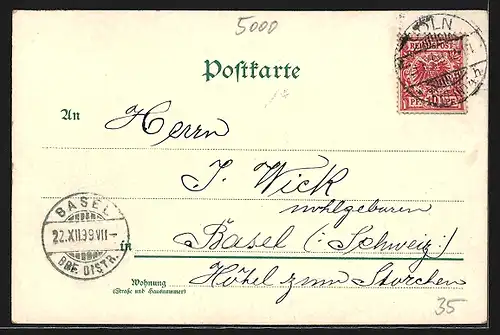 5000
KÖLN
REICHSPOST
10 PFENNIG 10
Postkarte
An
Herrn
J. Wick
wohlgeboren
BASEL
22.XII.99.VII
BRF. DISTR.
in Basel (: Schweiz)
Wohnung
(Straße und Hausnummer)
Hôtel zum Storchen
35